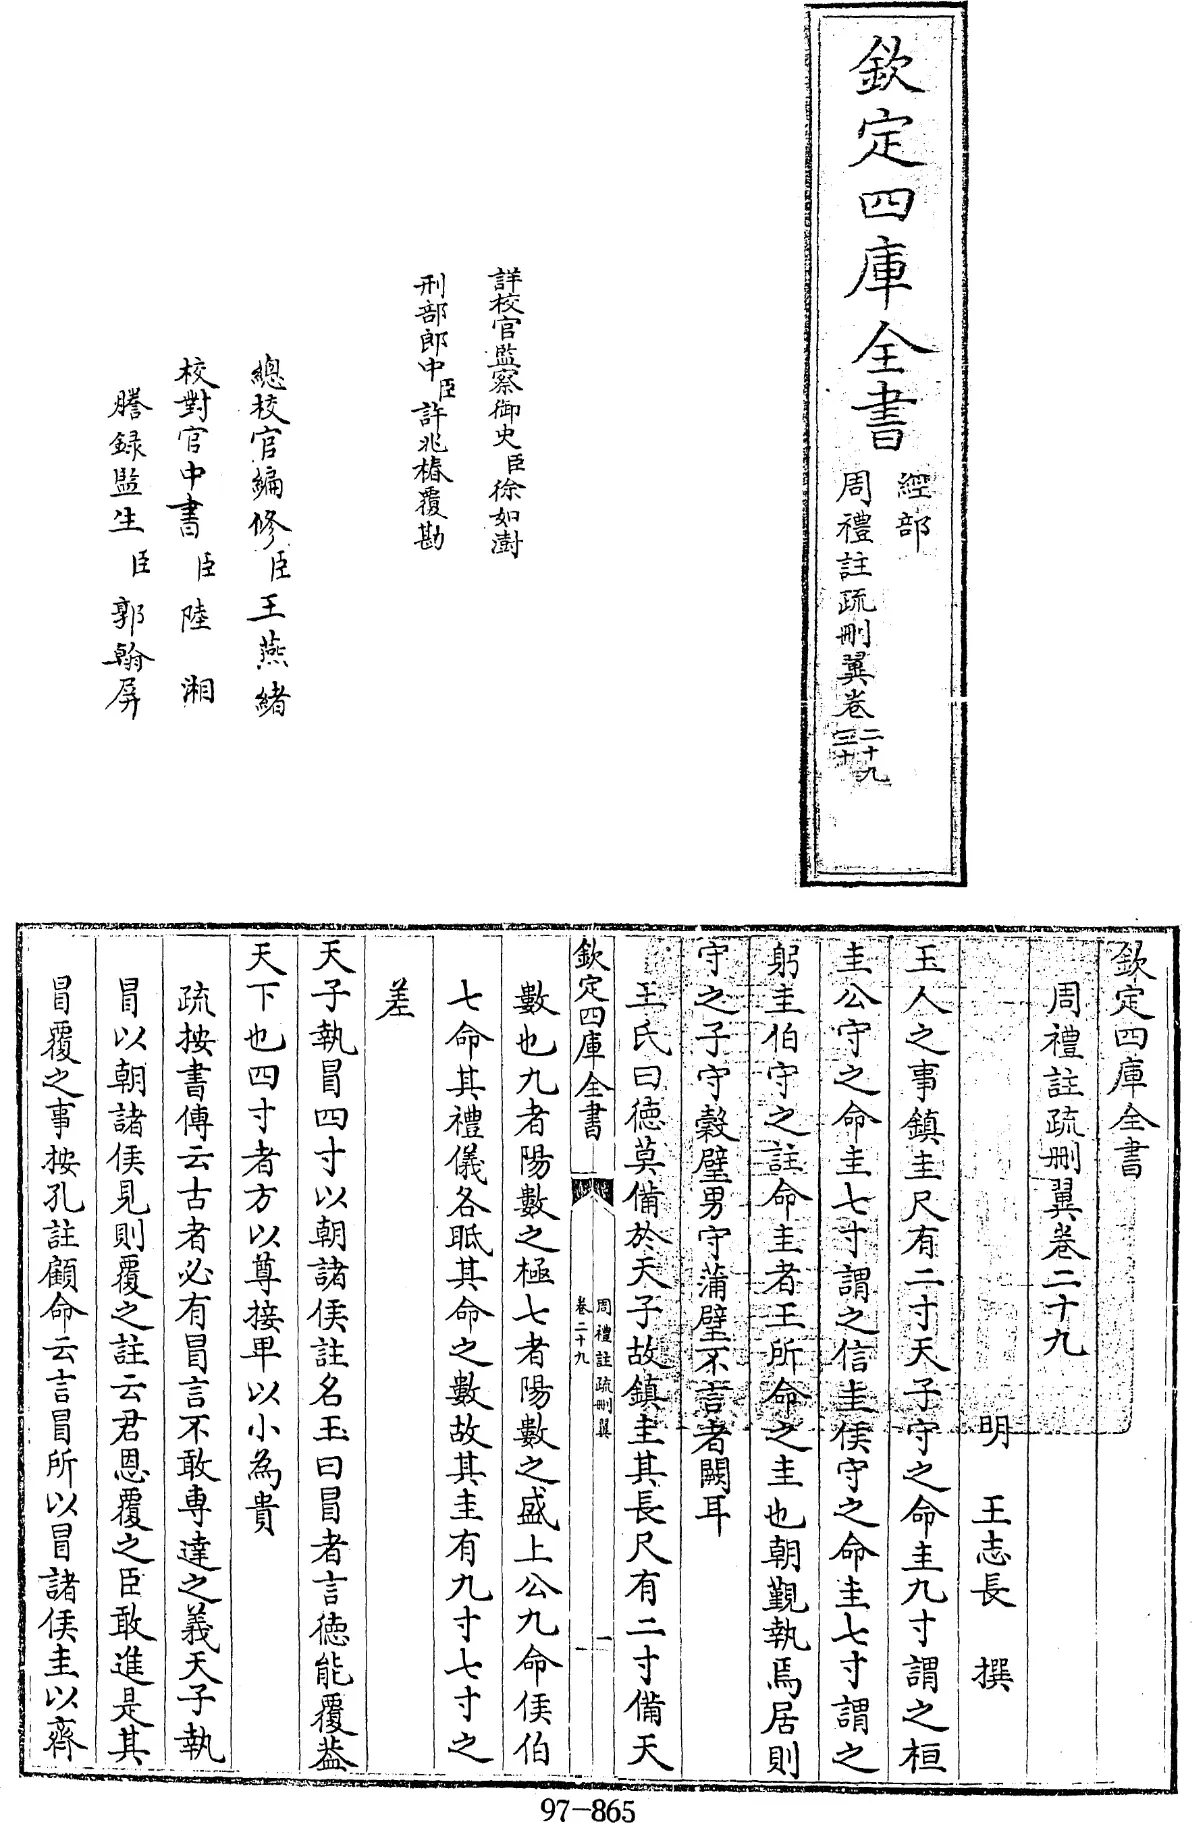 欽定四庫全書
經部
周禮註疏刪翼卷二十九
三十
詳校官監察御史臣徐如澍
刑部郎中臣許兆椿覆勘
總校官編修臣王燕緒
校對官中書臣陸湘
謄録監生臣郭翰屏
欽定四庫全書
周禮註疏刪翼卷二十九
明 王志長 撰
玉人之事鎮圭尺有二寸天子守之命圭九寸謂之桓
圭公守之命圭七寸謂之信圭侯守之命圭七寸謂之
躬圭伯守之註命圭者王所命之圭也朝覲執焉居則
守之子守穀璧男守蒲璧不言者闕耳
王氏曰徳莫備於天子故鎮圭其長尺有二寸備天
欽定四庫全書
周禮註疏刪翼
卷二十九
一
數也九者陽數之極七者陽數之盛上公九命侯伯
七命其禮儀各眡其命之數故其圭有九寸七寸之
差
天子執冒四寸以朝諸侯註名玉曰冒者言徳能覆葢
天下也四寸者方以尊接卑以小為貴
疏按書傳云古者必有冒言不敢専達之義天子執
冒以朝諸侯見則覆之註云君恩覆之臣敢進是其
冒覆之事按孔註顧命云言冒所以冒諸侯圭以齊
97-865